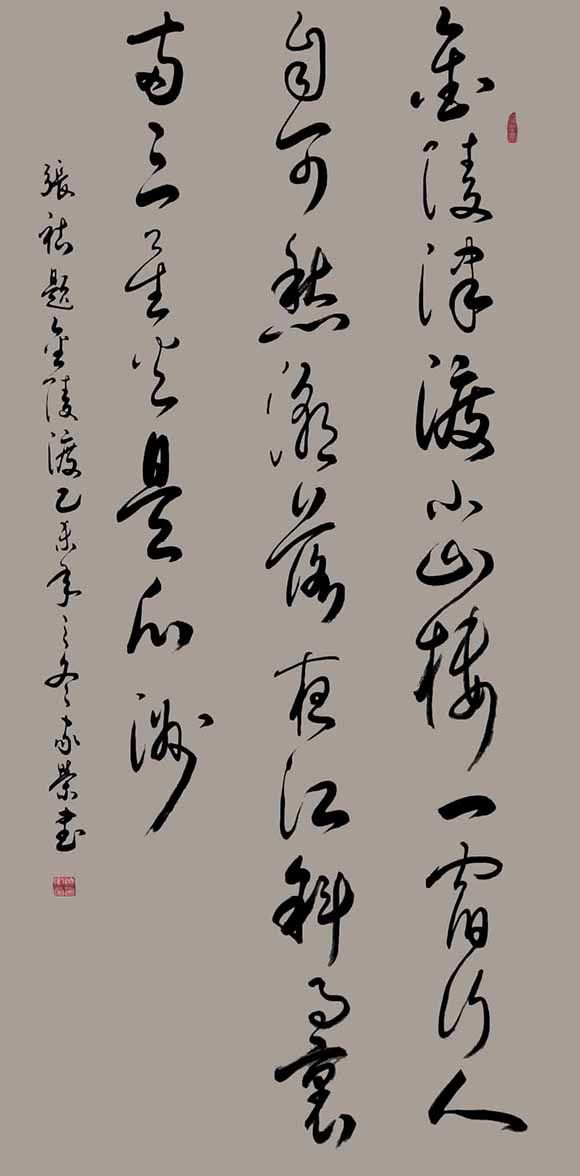 金陵津渡小山樓一宿行人
自可愁潮落夜江斜月裏
兩三星火是瓜洲
張祜題金陵渡乙未年之冬家榮書